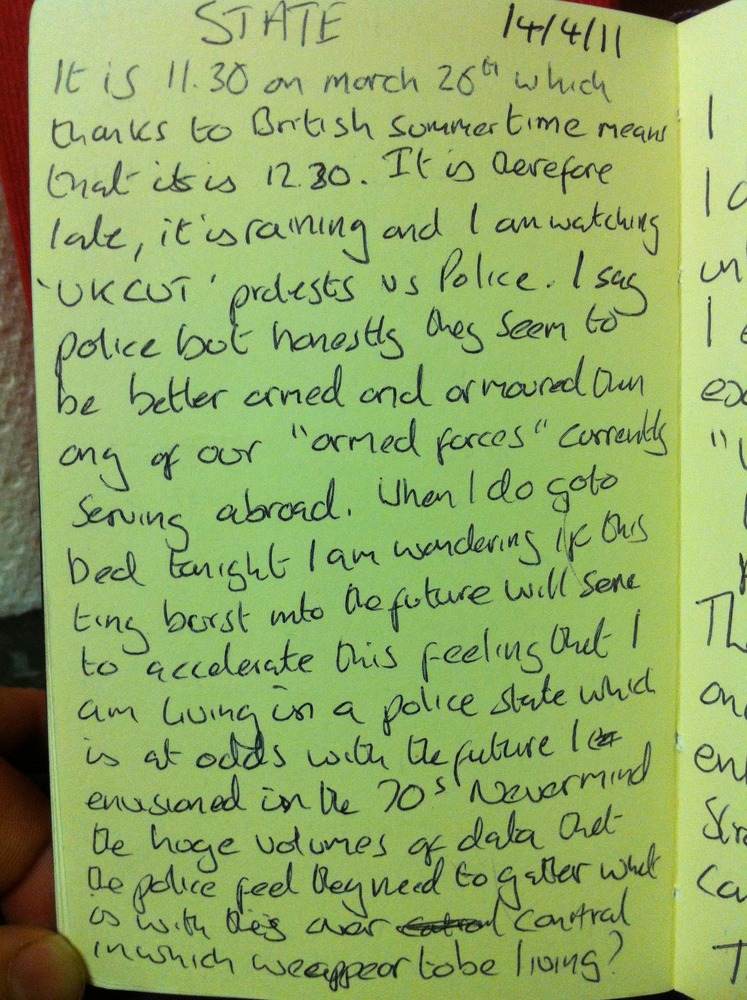 STATE 14/4/11
It is 11.30 on march 26th which
thanks to British summertime means
that it is 12.30. It is therefore
late, it is raining and I am watching
'UKCUT' protests vs Police. I say
police but honestly they seem to
be better armed and armoured than
any of our "armed forces" currently
serving abroad. When I do goto
bed tonight I am wondering if this
tiny burst into the future will serve
to accelerate this feeling that I
am living in a police state which
is at odds with the future I
envisioned in the 70s Nevermind
the huge volumes of data that
the police feel they need to gather what
is with this over control
in which we appear to be living?
I
I
un
I
exc
"
Th
on
en
Stra
Ca
T